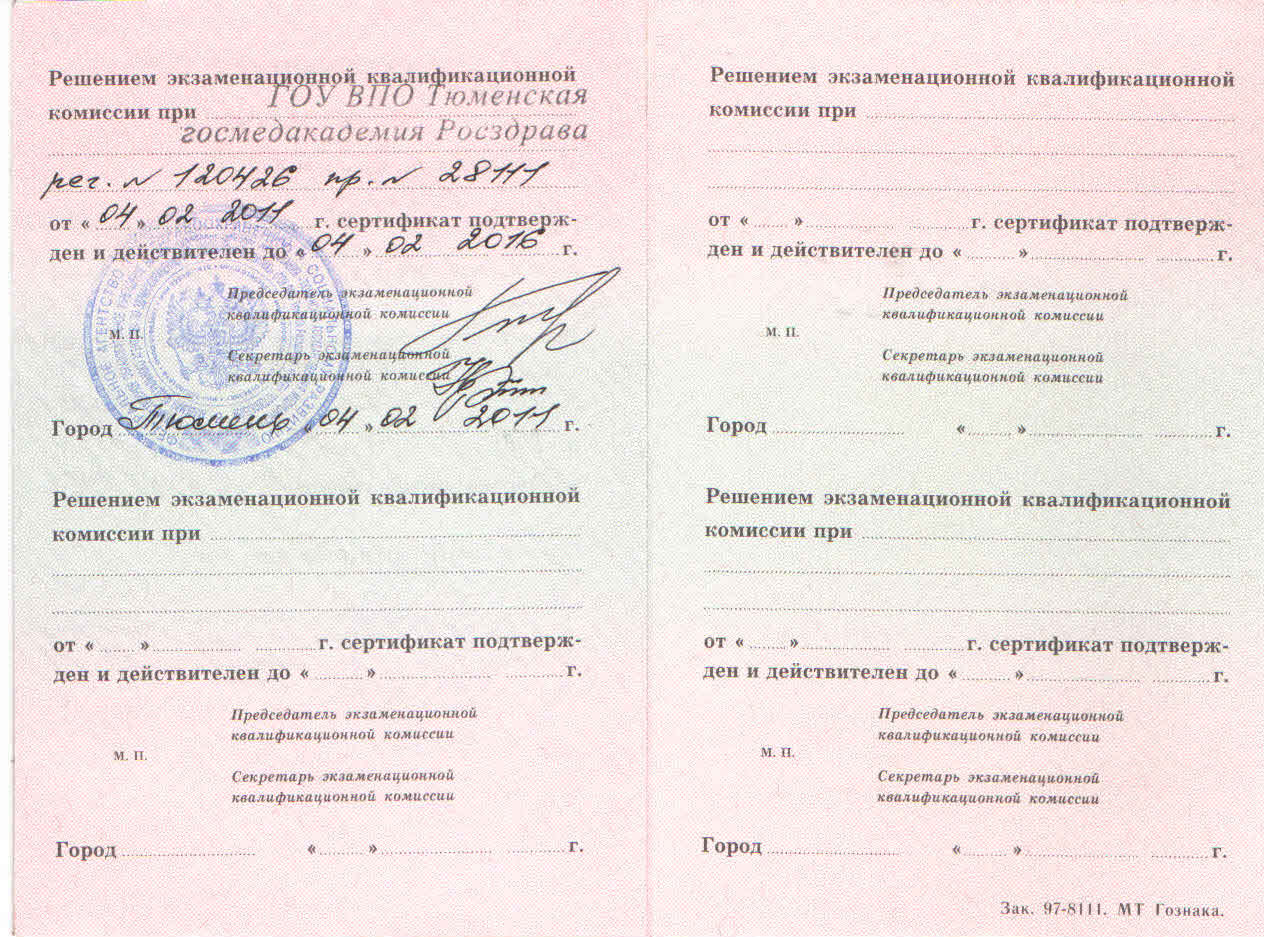 Решением экзаменационной квалификационной
комиссии при ГОУ ВПО Тюменская
госмедакадемия Росздрава
рег. N 120426 пр. N 28111
от «04» 02 2011 г. сертификат подтверж-
ден и действителен до «04» 02 2016 г.
Председатель экзаменационной
квалификационной комиссии
М. П.
Секретарь экзаменационной
квалификационной комиссии
Город Тюмень «04» 02 2011 г.
Решением экзаменационной квалификационной
комиссии при
от « » г. сертификат подтверж-
ден и действителен до « » г.
Председатель экзаменационной
квалификационной комиссии
М. П.
Секретарь экзаменационной
квалификационной комиссии
Город « » г.
Решением экзаменационной квалификационной
комиссии при
от « » г. сертификат подтверж-
ден и действителен до « » г.
Председатель экзаменационной
квалификационной комиссии
М. П.
Секретарь экзаменационной
квалификационной комиссии
Город « » г.
Решением экзаменационной квалификационной
комиссии при
от « » г. сертификат подтверж-
ден и действителен до « » г.
Председатель экзаменационной
квалификационной комиссии
М. П.
Секретарь экзаменационной
квалификационной комиссии
Город « » г.
Зак. 97-8111. МТ Гознака.